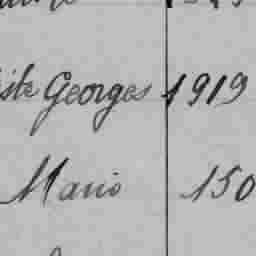 Georges 1919
Mario 150